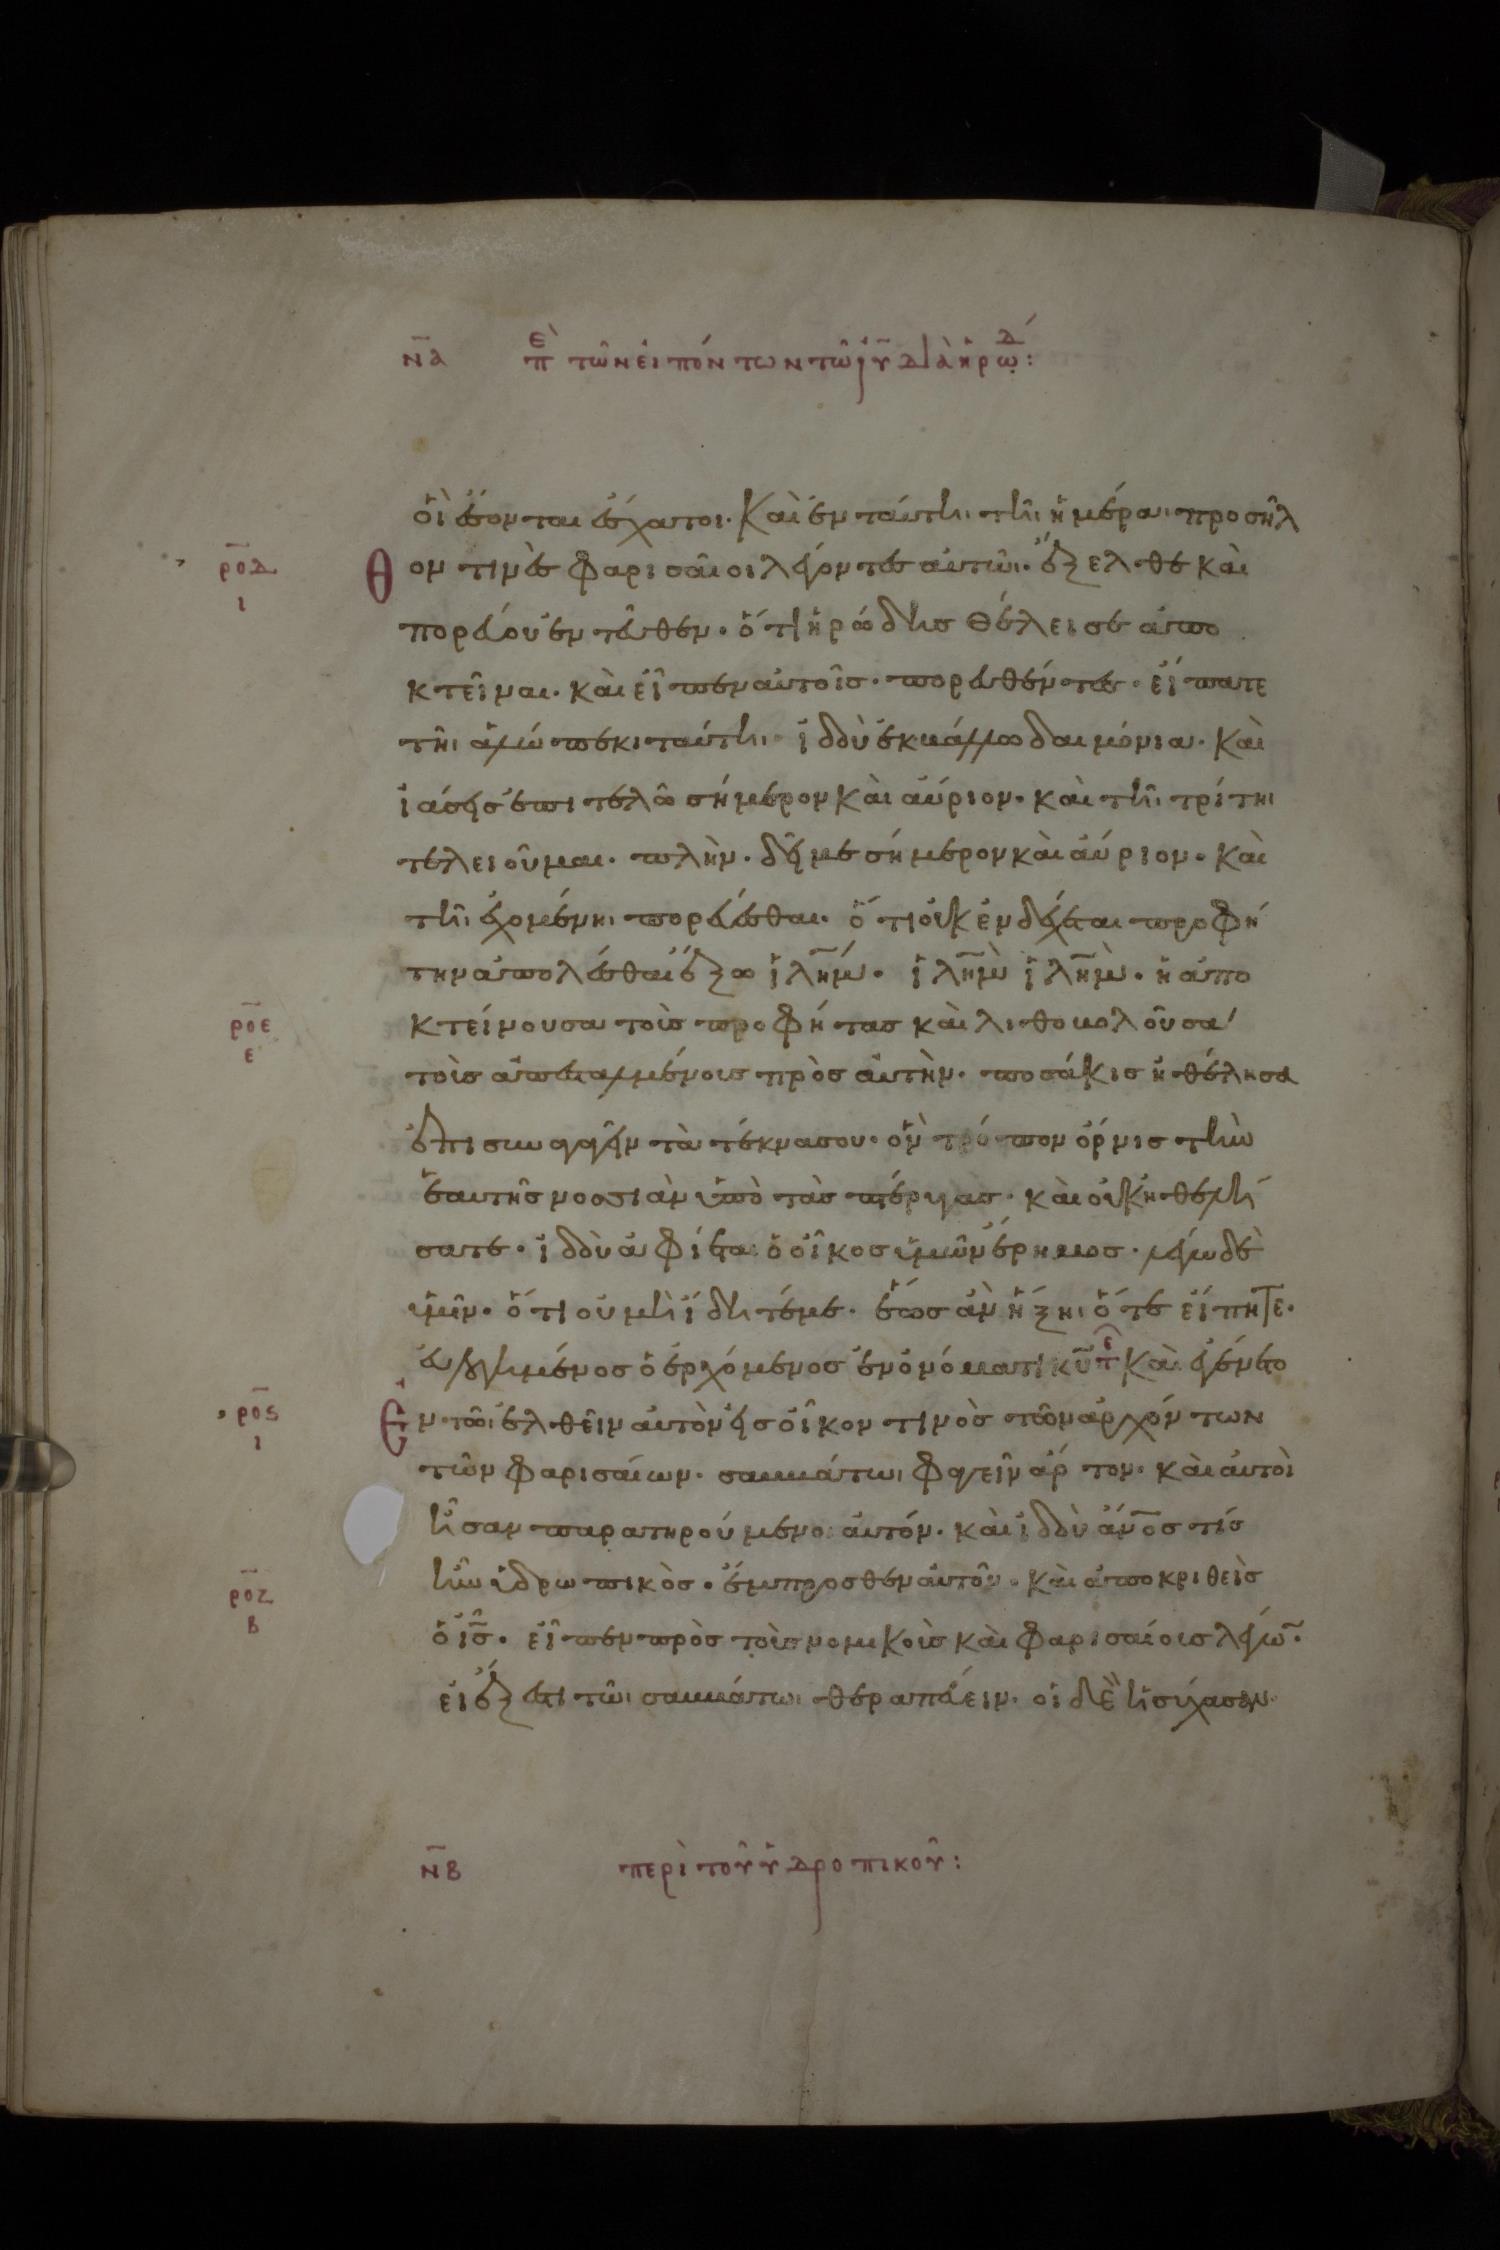 ν̅α π̅ὲ τῶν εἰπόντων τῶ ἰ̅υ̅ διὰ ἡρώδ:
οἳ ἔσονται ἔσχατοι. Καὶ ἐν ταύτηι τῆι ἡμέραι προσῆλ
ρ̅ο̅δ̅ ι θον τινὲς φαρισαῖοι λέγοντες αὐτῶι. ἔξελθε καὶ
πορεύου ἐντεῦθεν. ὅτι ἡρώδης θέλει σε ἀπο
κτεῖναι. καὶ εἶπεν αὐτοῖς. πορευθέντες. εἴπατε
τῆι ἀλώπεκι ταύτηι. ἰδοὺ ἐκβάλλω δαιμόνια. καὶ
ἰάσεις ἐπιτελῶ σήμερον καὶ αὔριον. καὶ τῆι τρίτηι
τελειοῦμαι. πλὴν. δεῖ με σήμερον καὶ αὔριον. καὶ
τῆι ἐχομένηι πορεύεσθαι. ὅτι οὐκ ἐνδέχεται προφή
την ἀπολέσθαι ἔξω ἰ̅λ̅η̅μ̅. ἰ̅λ̅η̅μ̅ ἰ̅λ̅η̅μ̅. ἡ ἀπο
ρ̅ο̅ε̅ ε κτείνουσα τοὺς προφήτας καὶ λιθοβολοῦσα
τοὺς ἀπεσταλμένους πρὸς αὐτὴν. ποσάκις ἠθέλησα
ἐπισυναγαγεῖν τὰ τέκνα σου. ὃν τρόπον ὄρνις τὴν
ἑαυτῆς νοσσιὰν ὑπὸ τὰς πτέρυγας. καὶ οὐκ ἠθελή
σατε. ἰδοὺ ἀφίεται ὁ οἶκος ὑμῶν ἔρημος. λέγω δὲ
ὑμῖν. ὅτι οὐ μὴ ἴδητέ με. ἕως ἂν ἥξηι ὅτε εἴπητε.
εὐλογημένος ὁ ἐρχόμενος ἐν ὀνόματι κ̅υ̅ τε Καὶ ἐγένετο
ρ̅ο̅ς̅ ι ἐν τῶι ἐλθεῖν αὐτὸν εἰς οἶκον τινὸς τῶν ἀρχόντων
τῶν φαρισαίων. σαββάτωι φαγεῖν ἄρτον. καὶ αὐτοὶ
ἦσαν παρατηρούμενοι αὐτόν. καὶ ἰδοὺ ἄν̅ο̅ς τίς
ρ̅ο̅ζ̅ β ἦν ὑδρωπικὸς. ἔμπροσθεν αὐτοῦ. καὶ ἀποκριθεὶς
ὁ ἰ̅ς̅. εἶπεν πρὸς τοὺς νομικοὺς καὶ φαρισαίους λέγω̅.
εἰ ἔξεστι τῶι σαββάτωι θεραπεύειν. οἱ δὲ ἡσύχασαν.
ν̅β περὶ τοῦ ὑδροπικοῦ: